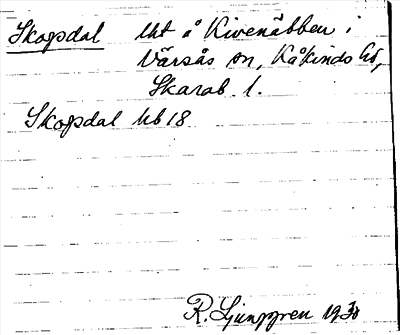 Skogsdal Uht å Kivenäbben i
Värsås sn, Kåkinds hd,
Skarab. l.
Skogsdal Ub 18
R. Ljunggren 1930